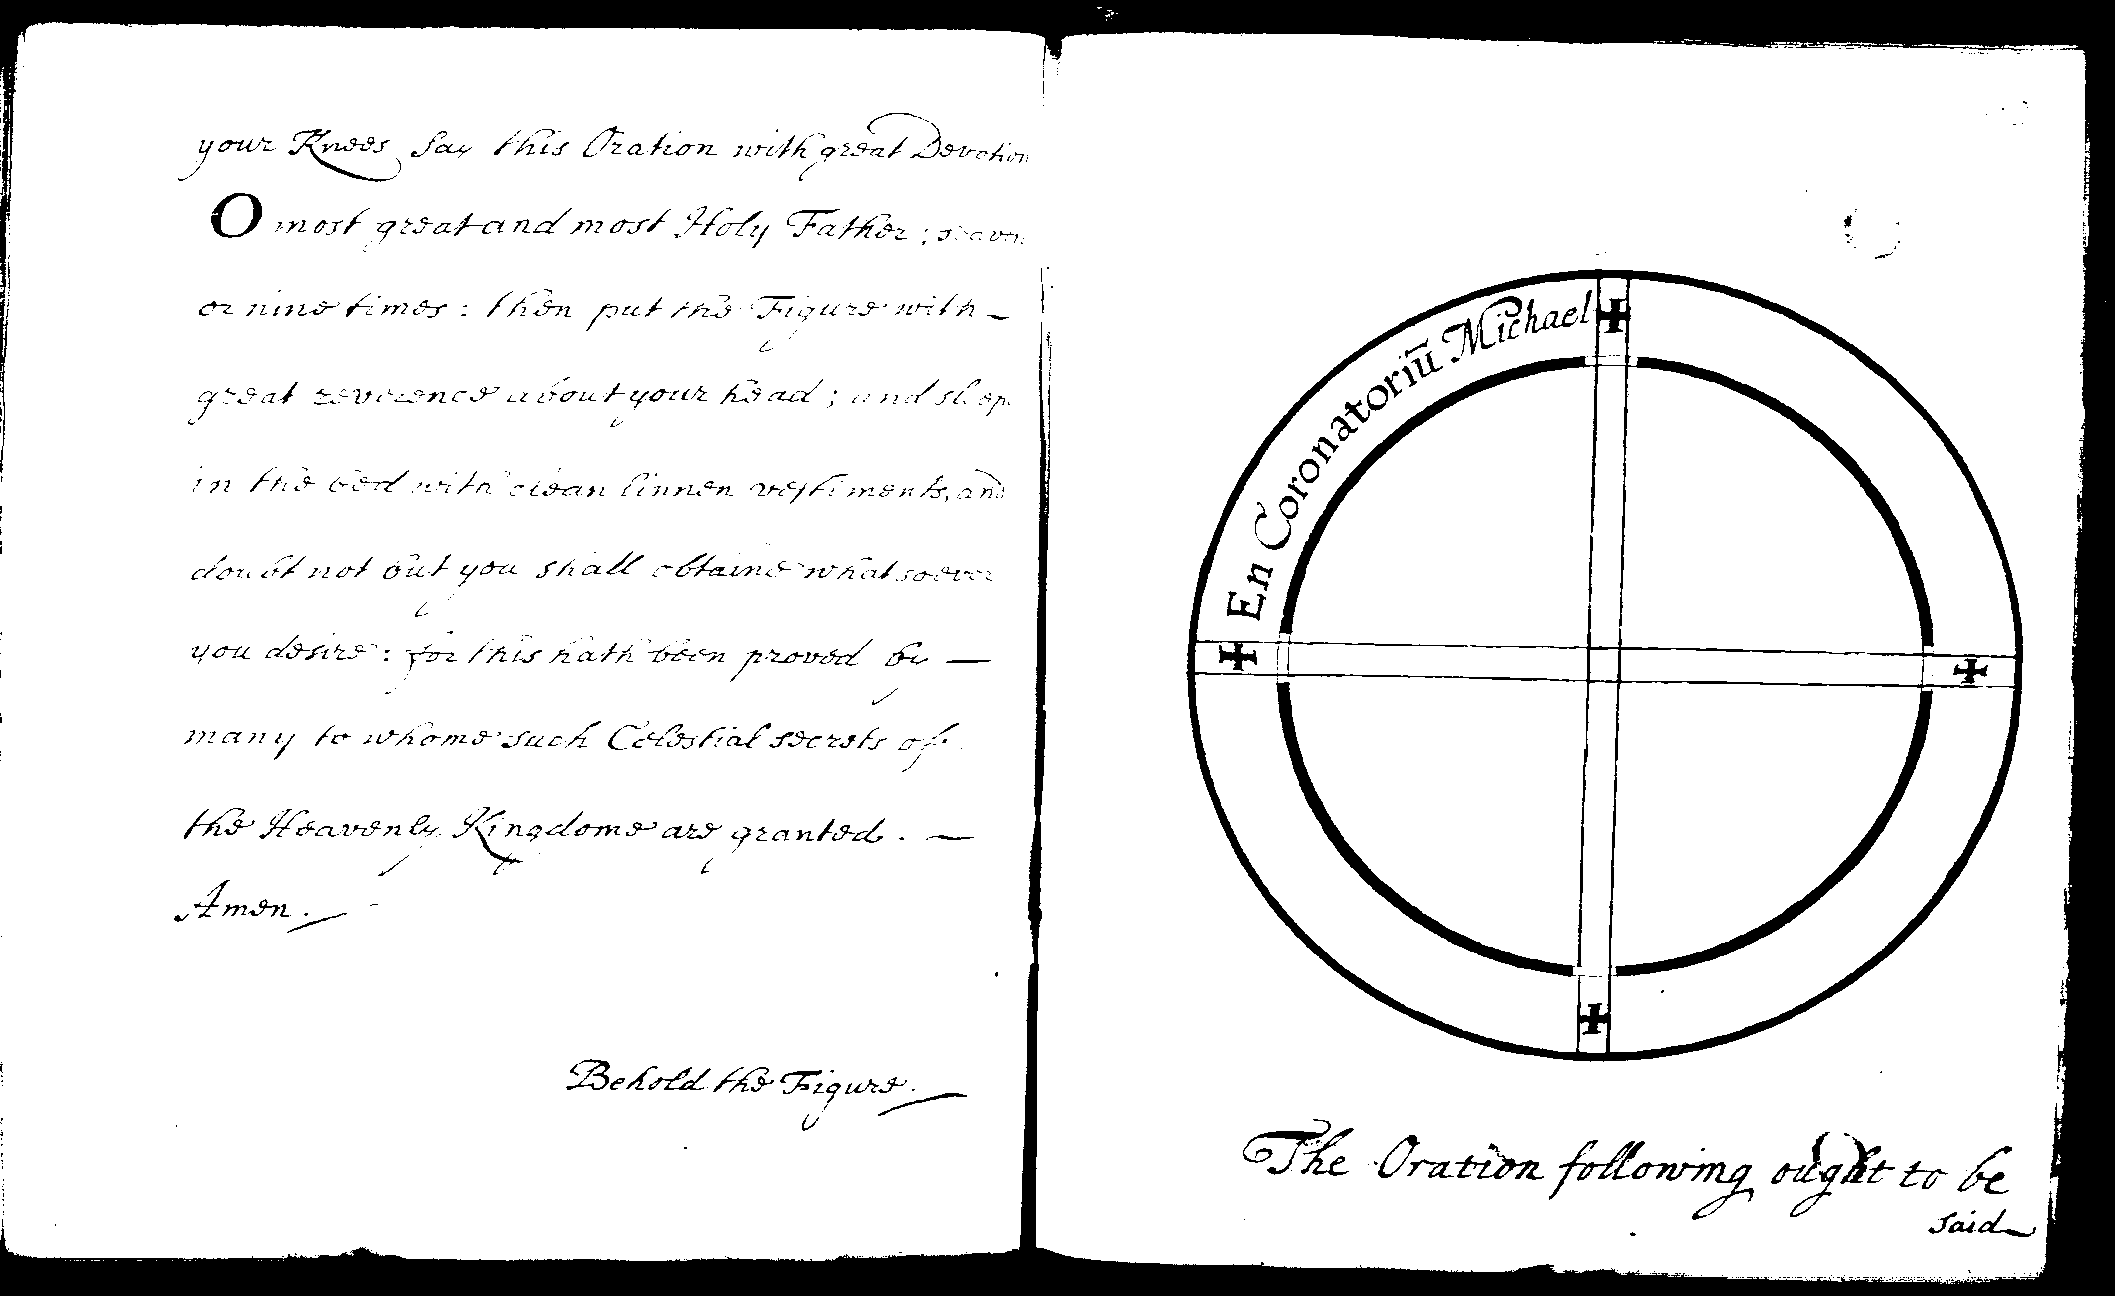 your Knees say this Oration with great Devotion
O most great and most Holy Father; seaven
or nine times: then put the Figure with –
great reverence about your head; and sleep
in the bed with clean linnen vestiments, and
doubt not but you shall obtaine whatsoever
you desire: for this hath been proved by —
many to whome such Celestial secrets of
the Heavenly Kingdome are granted. —
Amen.
Behold the Figure.
En Coronatoriū Michael
The Oration following ought to be
said